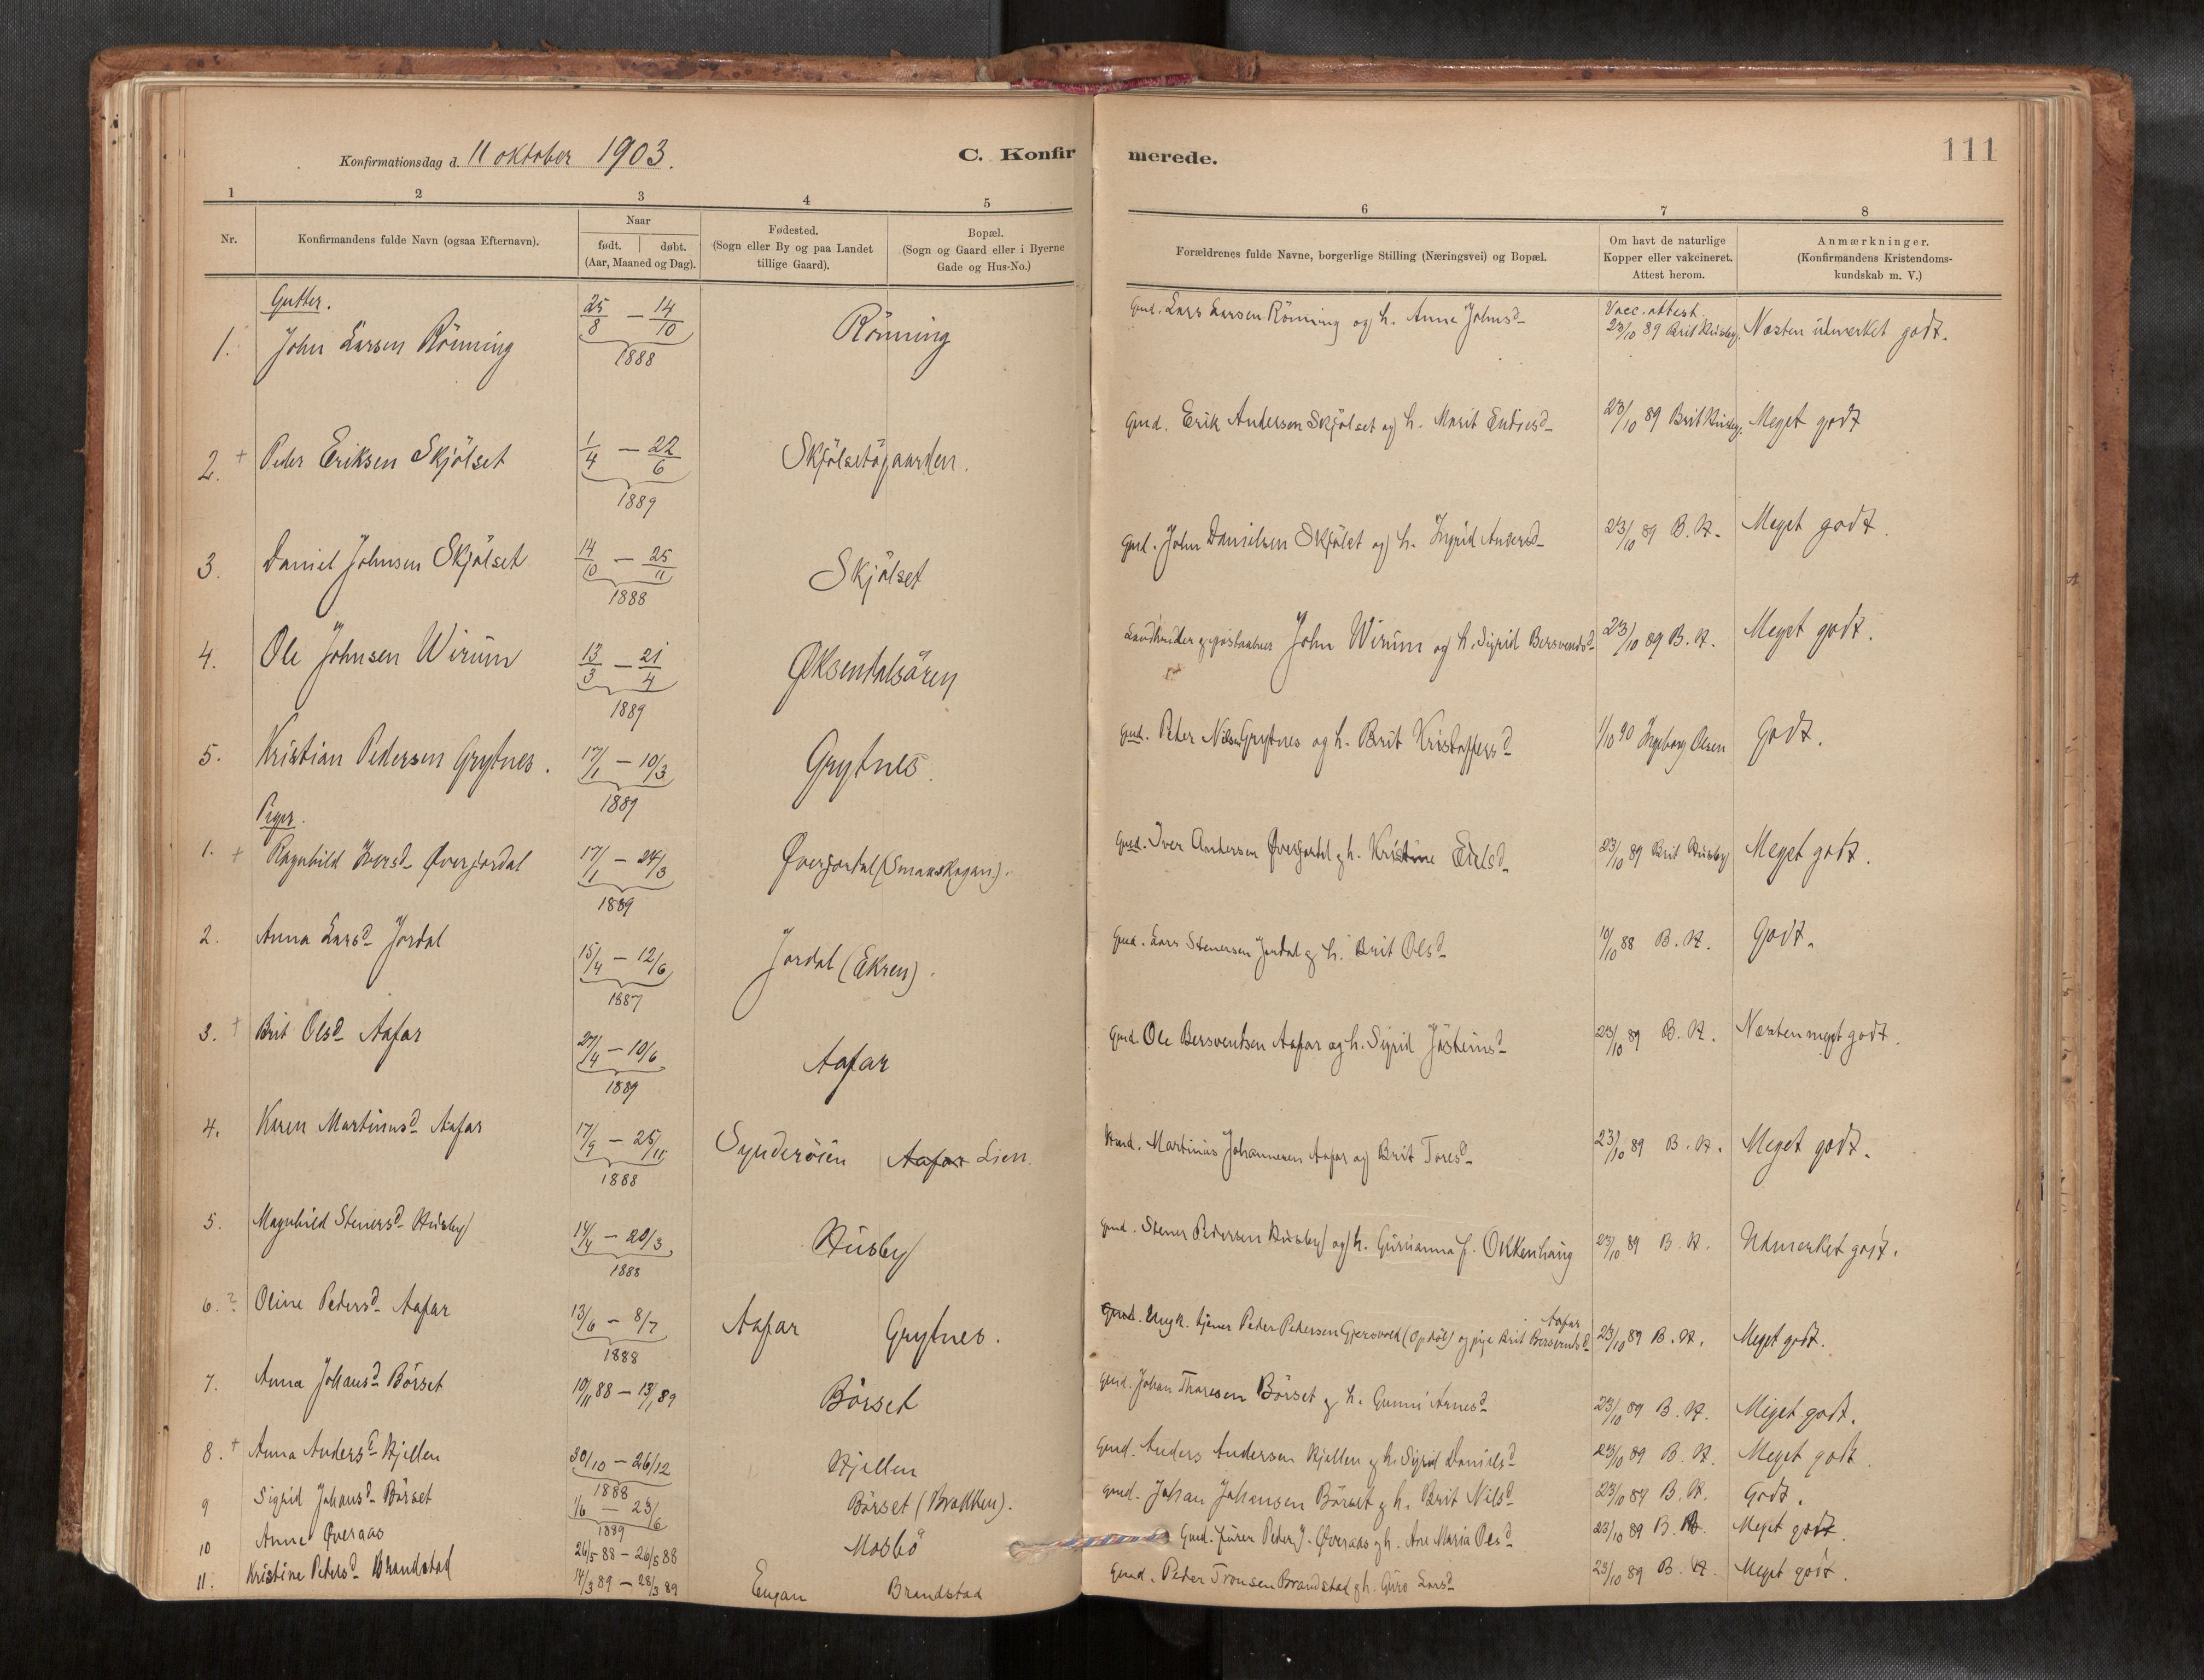 Konfirmationsdag d. 11 oktober 1903.
C. Konfirmerede.
111
1 2 3 4 5 6 7 8
Nr.
Konfirmandens fulde Navn (ogsaa Efternavn).
Naar
født. | døbt.
(Aar, Maaned og Dag).
Fødested.
(Sogn eller By og paa Landet
tillige Gaard).
Bopæl.
(Sogn og Gaard eller i Byerne
Gade og Hus-No.)
Forældrenes fulde Navne, borgerlige Stilling (Næringsvei) og Bopæl.
Om havt de naturlige
Kopper eller vakcineret.
Attest herom.
Anmærkninger.
(Konfirmandens Kristendoms-
kundskab m. V.)
Gutter.
1. John Larsen Rönning 25/8 — 14/10 1888 Rönning Gmd. Lars Larsen Rönning og h. Anne Johnsd Vacc. attest 23/10 89 Brit Husby. Næsten udmerket godt.
2. + Peder Eriksen Skjölset 1/4 — 22/6 1889 Skjölsetögaarden. Gmd. Erik Andersen Skjölset og h. Marit 23/10 89 Brit Husby. Meget godt
3. Daniel Johnsen Skjölset 14/10 — 25/11 1888 Skjölset Gmd. John Danielsen Skjölset og h. Ingrid Andersd 23/10 89 B. H. Meget godt.
4. Ole Johnsen Wirum 13/3 — 21/4 1889 Øksendalsören Landhandler og postaabner John Wirum og h. Sigrid Bersvendsd 23/10 89 B. H. Meget godt.
5. Kristian Pedersen Grytnes. 17/1 — 10/3 1889 Grytnes. Gmd. Peder Nilsen Grytnes og h. Brit Kristoffersd 1/10 90 Ingeborg Olsen Godt.
Piger.
1. + Ragnhild Iversd Øverjordal 17/1 — 24/3 1889 Øverjordal (Smaaskogan). Gmd. Iver Andersen Øverjordal og h. Kristine 23/10 89 Brit Husby Meget godt.
2. Anna Larsd Jordal 15/4 — 12/6 1887 Jordal (Ekren). Gmd. Lars Stenersen Jordal og h. Brit Olsd 10/10 88 B. H. Godt.
3. + Brit Olsd Aafar 27/4 — 10/6 1889 Aafar Gmd. Ole Bersvendsen Aafar og h. Sigrid Jösteinsd 23/10 89 B. H. Næsten meget godt.
4. Karen Martinusd Aafar 17/9 — 25/11 1888 Synderöien Aafar Lien. Hmd. Martinus Johannesen Aafar og Brit Toresd 23/10 89 B. H. Meget godt.
5. Magnhild Stenersd Husby 14/4 — 20/3 1888 Husby Gmd. Stener Pedersen Husby og h. Gurianna f. Okkenhaug 23/10 89 B. H. Udmerket godt.
6. ? Oline Pedersd Aafar 13/6 — 8/7 1888 Aafar Grytnes. Gmd. Ungk. tjener Peder Pedersen Gjersvold (Opdöl) og pige Brit Bersvendsd Aafar 23/10 89 B. H. Meget godt.
7. Anna Johansd Börset 10/11 88 — 13/1 89 Börset Gmd. Johan Thoresen Börset og h. Gunni Arnesd 23/10 89 B. H. Meget godt.
8. + Anna Andersd Hjellen 30/10 — 26/12 1888 Hjellen Gmd. Anders Andersen Hjellen og h. Sigrid Danielsd 23/10 89 B. H. Meget godt.
9 Sigrid Johansd Börset 1/6 — 23/6 1889 Börset (Brokken). Gmd. Johan Johansen Börset og h. Brit Nilsd 23/10 89 B. H. Godt.
10 Anne Øveraas 26/5 88 — 26/5 88 Mosbö Gmd. furer Peder J. Øveraas og h. Ane Maria Olsd 23/10 89 B. H. Meget godt.
11. Kristine Pedersd Brandstad 14/3 89 — 28/3 89 Eugan Brandstad Gmd. Peder Tronsen Brandstad og h. Guro Larsd 23/10 89 B. H. Meget godt.